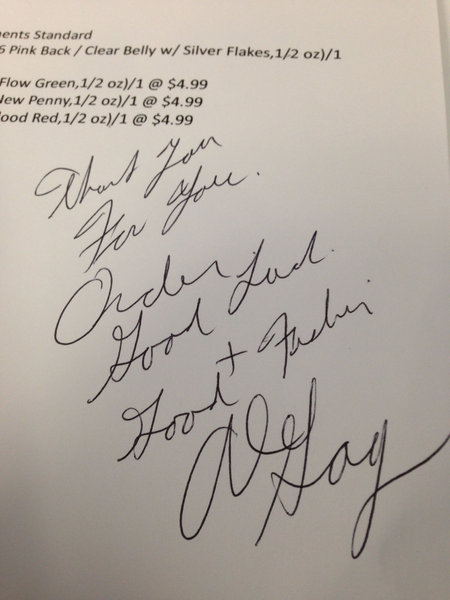 ents Standard
6 Pink Back / Clear Belly w/ Silver Flakes,1/2 oz)/1
Flow Green,1/2 oz)/1 @ $4.99
New Penny,1/2 oz)/1 @ $4.99
ood Red,1/2 oz)/1 @ $4.99
Thank You
For Your
Order
Good Luck.
+
Good Fishin
Al Gag